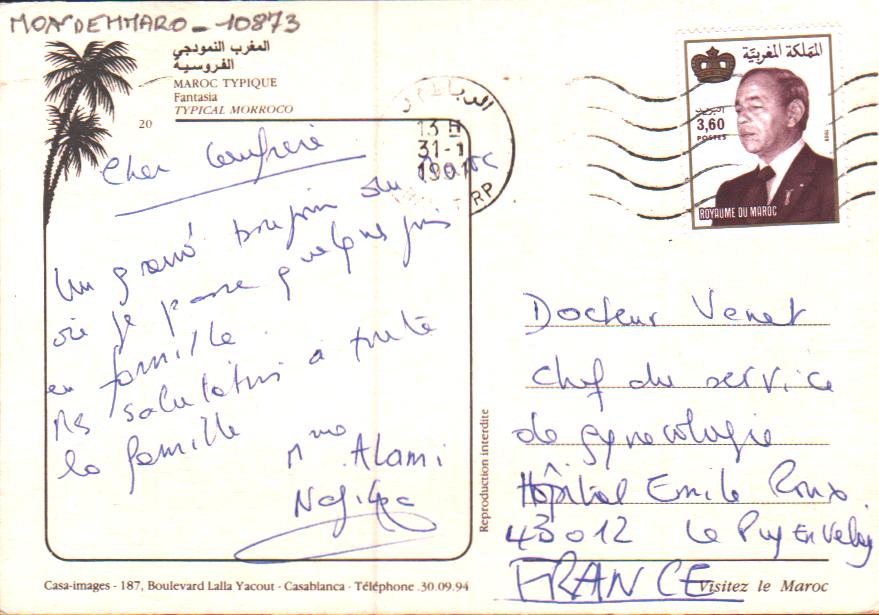 MONDEMMARO - 10873
المغرب النموذجي
الفروسية
MAROC TYPIQUE
Fantasia
TYPICAL MORROCO
20
الرباط
13 H
31-1
RP
المملكة المغربية
البريد
3,60
POSTES
ROYAUME DU MAROC
Cher Confrère
Un grand bonjour du Maroc
où je passe quelques jours
en famille.
Mes salutations à toute
la famille
Mme Alami
Docteur Venet
Chef du service
de gynecologie
Hôpital Emile Roux
43012 Le Puy En Velay
FRANCE
Reproduction interdite
Casa-images - 187, Boulevard Lalla Yacout - Casablanca - Téléphone .30.09.94
Visitez le Maroc